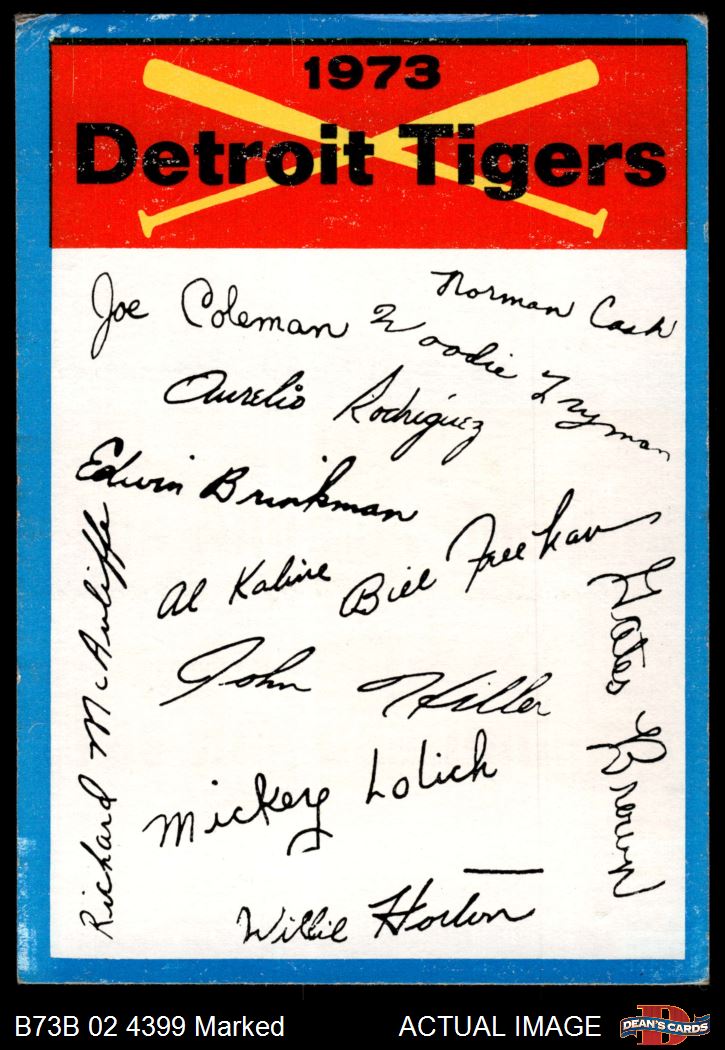 1973
Detroit Tigers
Norman Cash
Joe Coleman
Woodie Fryman
Aurelio Rodriguez
Edwin Brinkman
Bill Freehan
Al Kaline
Gates Brown
Richard McAuliffe
John Hiller
Mickey Lolich
Willie Horton
B73B 02 4399 Marked
ACTUAL IMAGE
D
DEAN'S CARDS